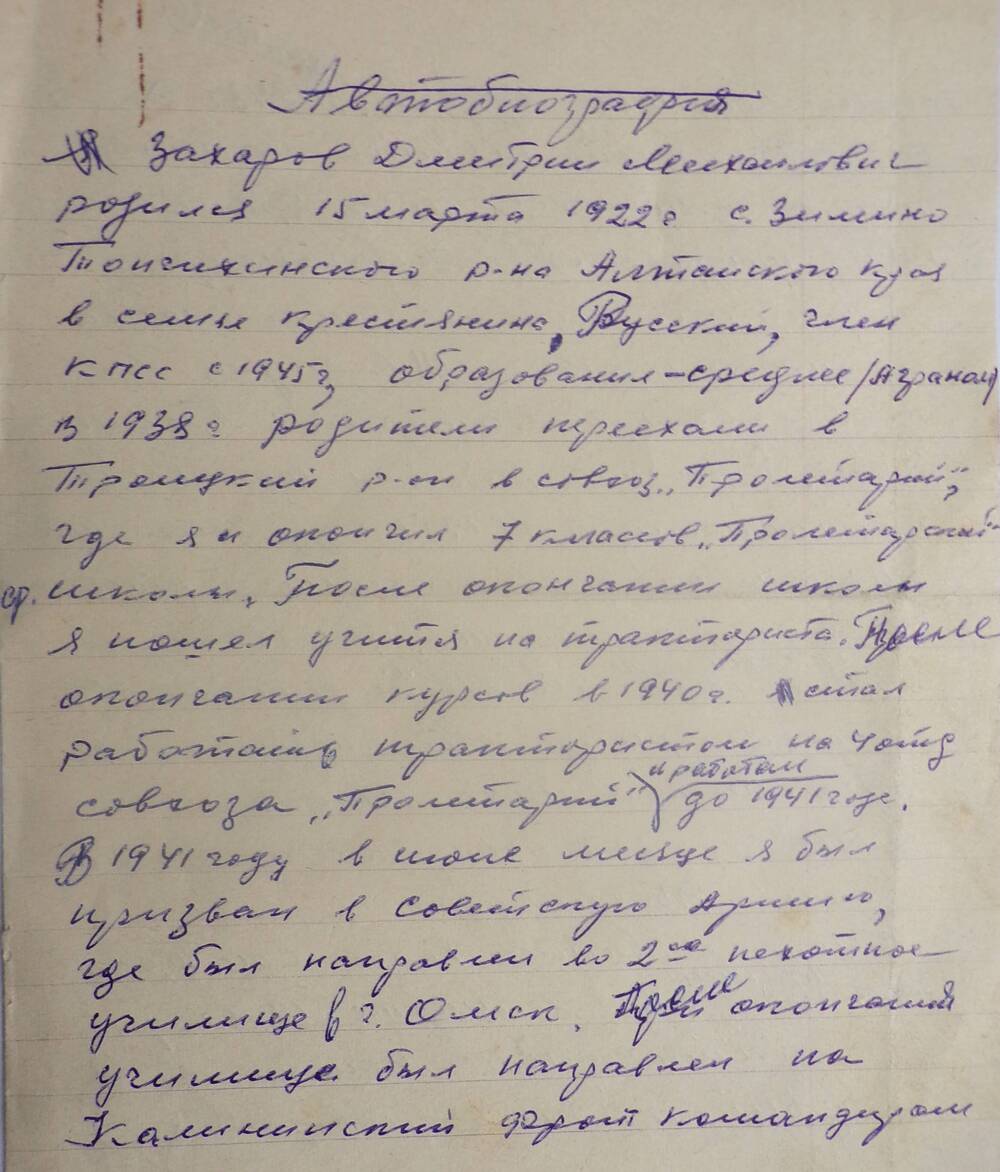 Автобиография
Я Захаров Дмитрий Михайлович
родился 15 марта 1922 г с. Зимино
Топчихинского р-на Алтайского края
в семье крестянина, Русский, член
КПСС с 1945 г, образования - среднее /Аграном/
в 1938 г родители переехали в
Троицкий р-он в совхоз „Пролетарий",
где я и окончил 7 классов „Пролетарской"
ср. школы. После окончании школы
я пошел учится на тракториста. После
окончании курсов в 1940 г. я стал
работать трактористом на 4 отд
и работал
совхоза „Пролетарий" до 1941 года.
В 1941 году в июне месяце я был
призван в советскую Армию,
где был направлен во 2-ое пехотное
училище в г. Омск. После окончания
училища был направлен на
Калининский фронт командиром